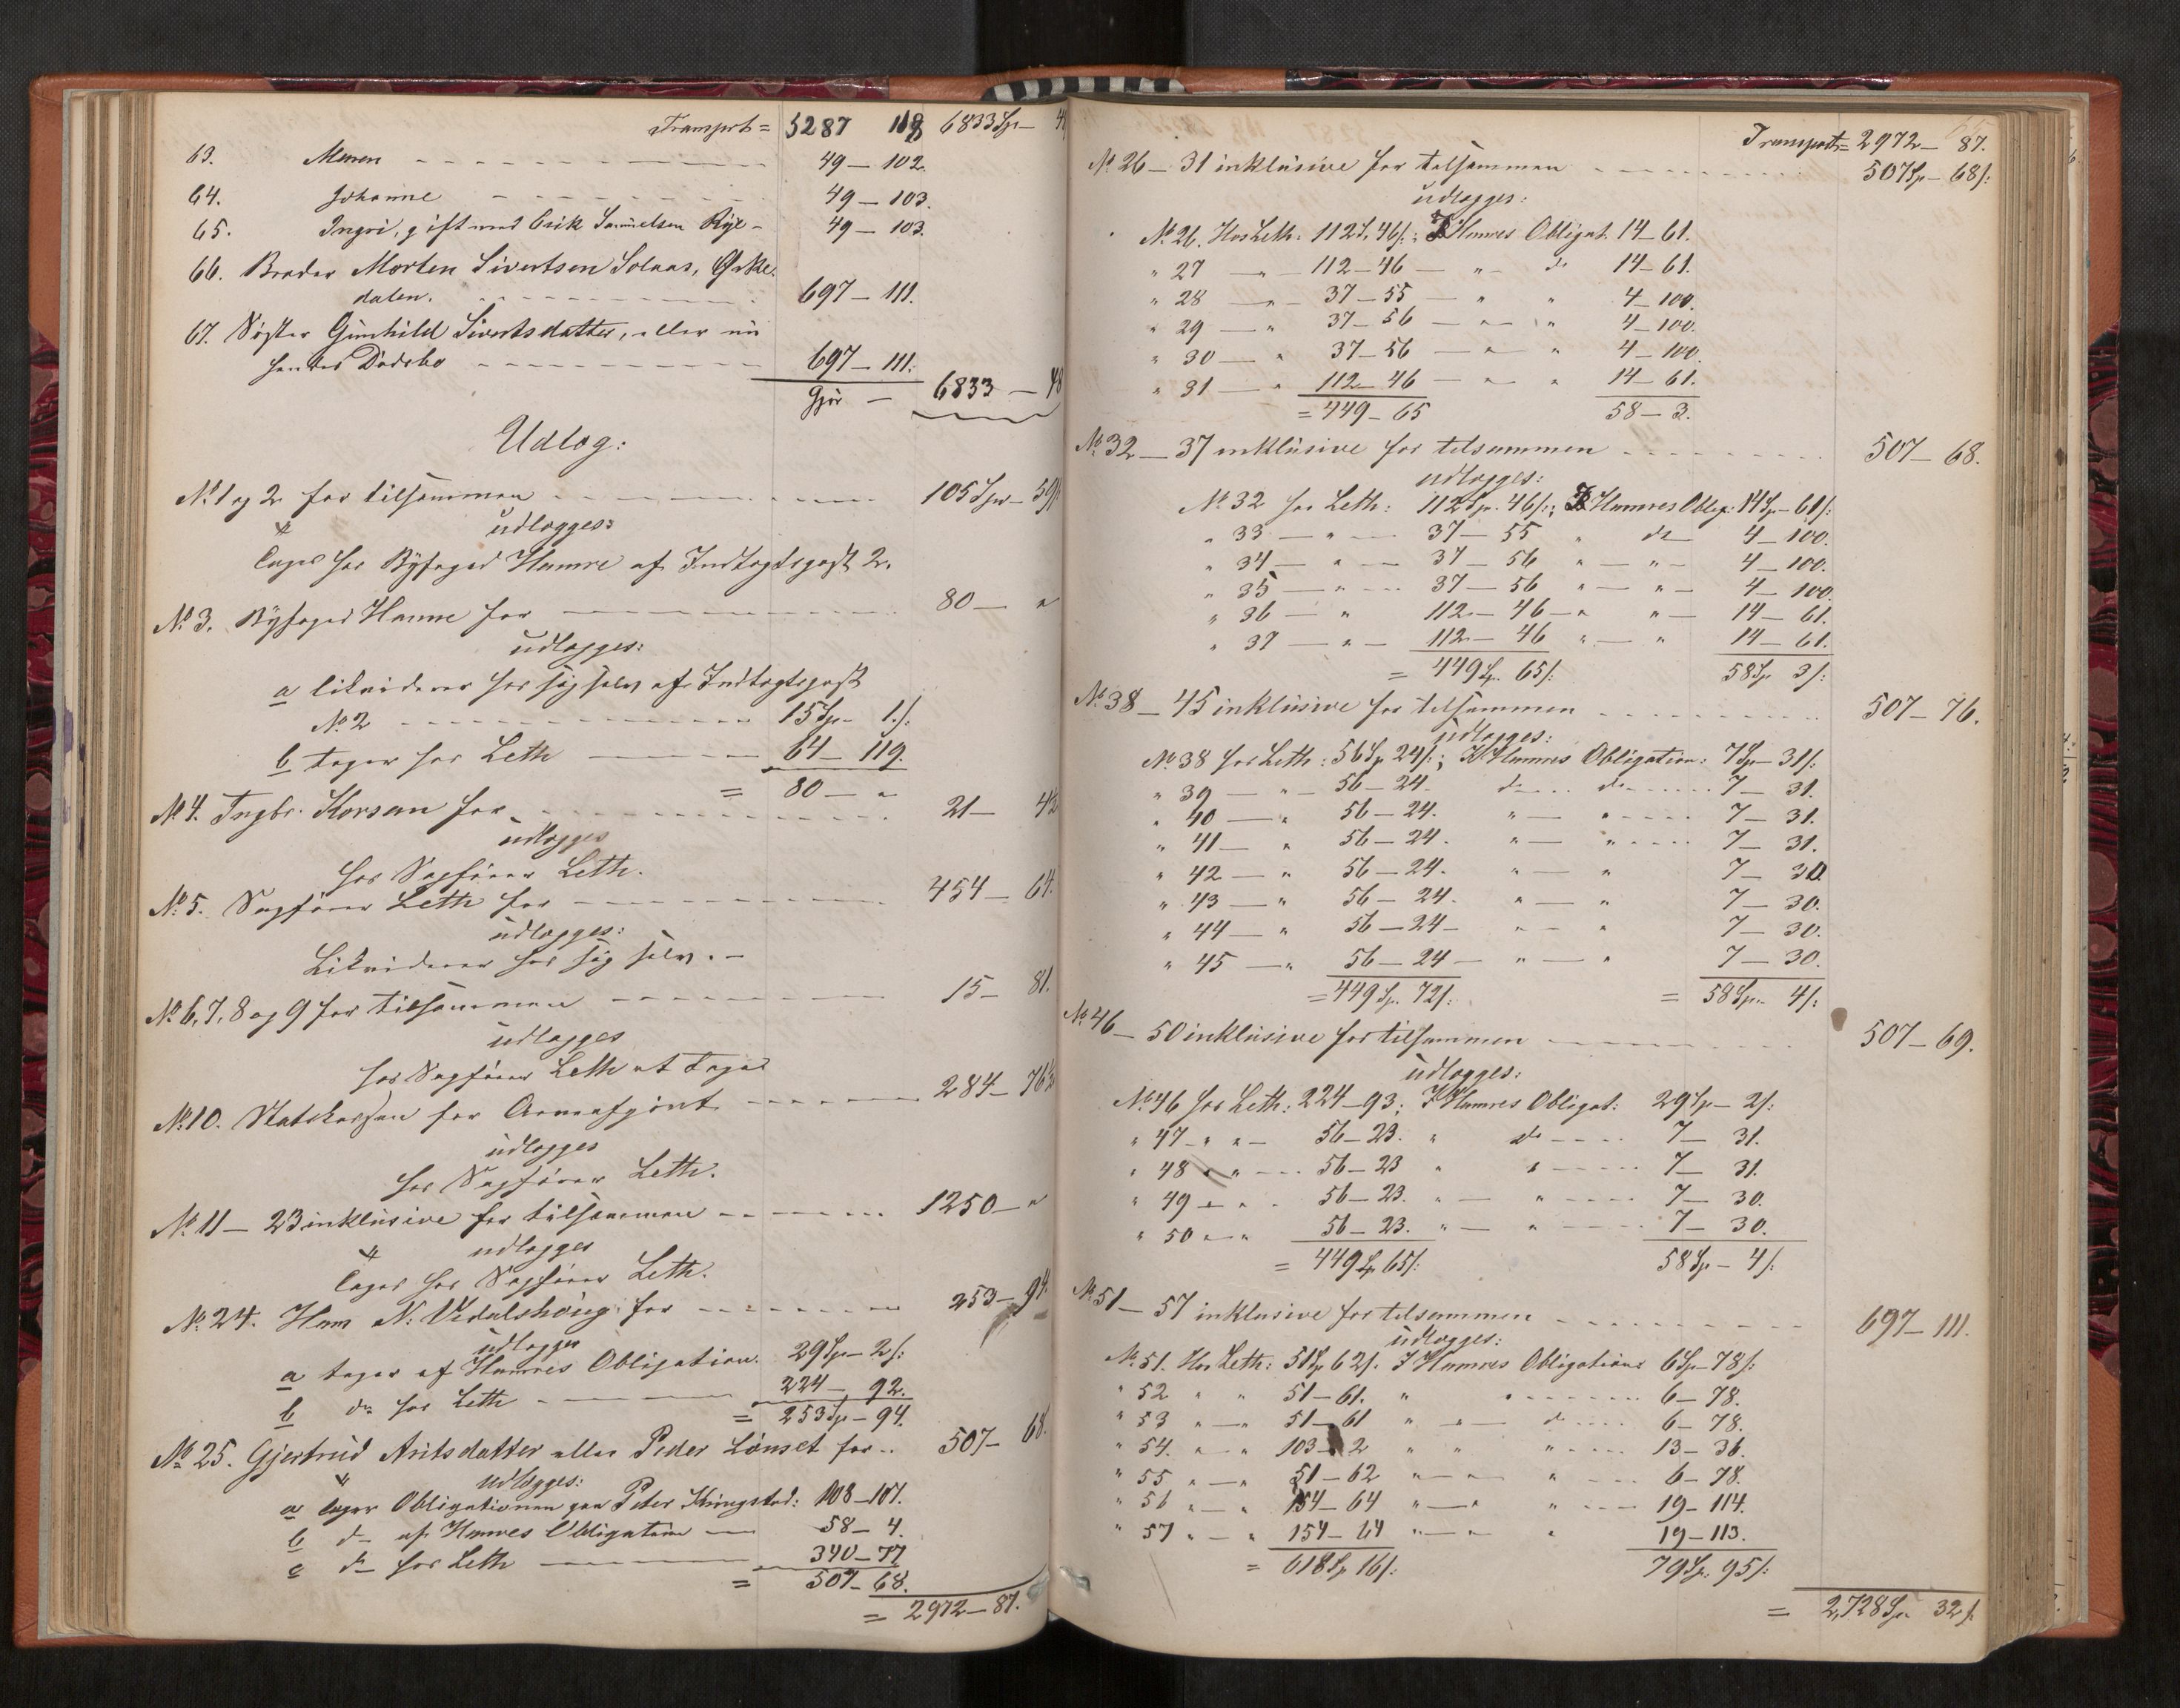 Transport = 5287 118 6833 Sp - 48
63. Maren - - - 49 - 102.
64. Johanne - - - 49 - 103.
65. Ingri, gift med Erik Samuelsen Rye - 49 - 103.
66. Broder Morten Sivertsen Solaas, Orke-
dalen. - - - 697 - 111.
67. Søster Gunhild Sivertsdatter, eller nu
hendes Dødsbo - - - 697 - 111.
Gjør - 6833 - 48
Udlæg:
No 1 og 2 for tilsammen - - - 105 Spd - 59
udlægges:
tages hos Byfoged Hamre af Indtægtspost 2.
No 3. Byfoged Hamre for - - - 80 - "
udlægges:
a likviderer hos sig selv af Indtægtspost
No 2 - - - 15 Sp - 1 s:
b tager hos Leth - - - 64 - 119.
= 80 - "
No 4. Ingbr. Korsan for - - - 21 - 42
udlægges
hos Sagfører Leth.
No 5. Sagfører Leth for - - - 454 - 64.
udlægges:
Likviderer hos sig selv. -
No 6, 7, 8 og 9 for tilsammen - - - 15 - 81.
udlægges
hos Sagfører Leth at tage
No 10. Statskassen for Arveafgivt - - - 284 - 76½
udlægges
hos Sagfører Leth.
No 11 - 23 inklusive for tilsammen - - - 1250 - "
udlægges
tages hos Sagfører Leth.
No 24. Hans N. Vedalshaug for - - - 253 - 94.
udlægges
a tager af Hamres Obligation. 29 Sp - 2 s:
b do hos Leth - - - 224 - 92.
= 253 Sp - 94.
No 25. Gjertrud Aritsdatter eller Peder Lønset for - - 507 - 68.
udlægges:
a tager Obligationen paa Peter Kringstad: 108 - 107.
b do af Hamres Obligation - 58 - 4.
c do hos Leth - - - 340 - 77
= 507 - 68.
= 2972 - 87.
Transport = 2972 - 87.
No 26 - 31 inklusive for tilsammen - - - 507 Sp - 68 s:
udlægges:
No 26. Hos Leth: 112 S. 46 s: I Hamres Obligat. 14 - 61.
" 27 - " - 112 - 46 - " - do 14 - 61.
" 28 - " - 37 - 55 - " " 4 - 100.
" 29 - " 37 - 56 - " - " 4 - 100.
" 30 - " 37 - 56 - " - " 4 - 100.
" 31 - " 112 - 46 - " - " 14 - 61.
= 449 - 65 58 - 3.
No 32 - 37 inklusive for tilsammen - - - 507 - 68.
udlægges:
No 32 hos Leth: 112 Sp. 46 s:; I Hamres Oblig: 14 Sp - 61 s:
" 33 - " - 37 - 55 " do 4 - 100.
" 34 - " - 37 - 56 " - " - 4 - 100.
" 35 - " - 37 - 56 " - " - 4 - 100.
" 36 - " 112 - 46 - " " - 14 - 61.
" 37 - " - 112 - 46 " - " 14 - 61.
= 449 Sp. 65 s: 58 Sp 3 s:
No 38 - 45 inklusive for tilsammen - - - 507 - 76.
udlægges:
No 38 hos Leth: 56 Sp 24 s:; I Hamres Obligation: 7 Sp - 31 s:
" 39 - " - 56 - 24. do - do - 7 - 31.
" 40 - " 56 - 24. " - " - 7 - 31.
" 41 - " 56 - 24. " - " - 7 - 31.
" 42 - " 56 - 24. " - " 7 - 30.
" 43 - " 56 - 24. " - " 7 - 30.
" 44 - " 56 - 24 - " - " 7 - 30.
" 45 - " 56 - 24 - " - " 7 - 30.
= 449 Sp. 72 s: = 58 Sp - 4 s:
No 46 - 50 inklusive for tilsammen - - - 507 - 69.
udlægges:
No 46 hos Leth: 224 - 93; I Hamres Obligat: 29 Sp - 2 s:
" 47 - " " - 56 - 23. " do - - 7 - 31.
" 48 " " - - 56 - 23 " " - - 7 - 31.
" 49 - " - 56 - 23. " - " - - 7 - 30.
" 50 " - " 56 - 23. " - " - - 7 - 30.
= 449 Sp 65 s: 58 Sp - 4 s:
No 51 - 57 inklusive for tilsammen - - - 697 - 111.
udlægges:
No 51. Hos Leth: 51 Sp 62 s. I Hamres Obligation 6 Sp - 78 s:
" 52 " " 51 - 61. " " - - 6 - 78.
" 53 " - " 51 - 61 " " - do - 6 - 78.
" 54. " - " 103 - 2 " " " - - 13 - 36.
" 55 " - " 51 - 62 " - " " - - 6 - 78.
" 56 " - " 154 - 64 " - " " - - 19 - 114.
" 57 " - " 154 - 64 " - " " 19 - 113.
= 618 Sp 16 s: 79 Sp: 95 s:
= 2,728 Sp 32 s.